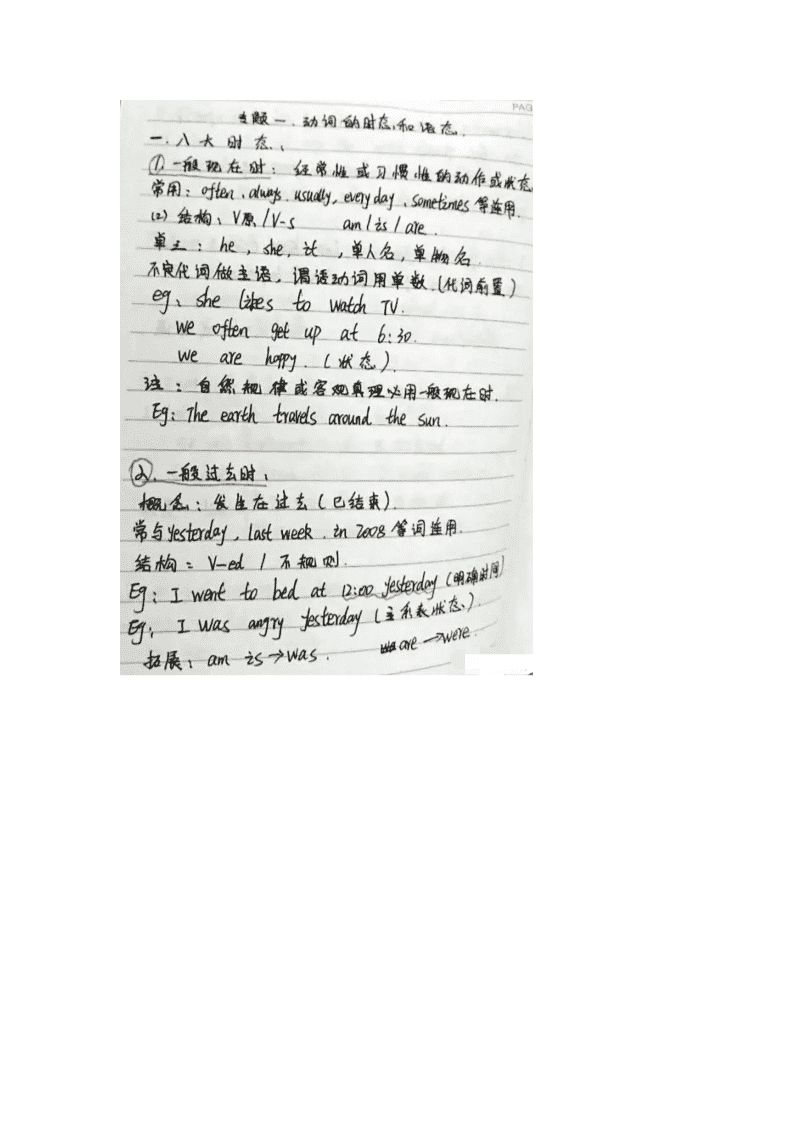 PAG
专题一.动词的时态和语态.
一.八大时态、
①.一般现在时:经常性或习惯性的动作或状态
常用:often、always、usually, every day、sometimes 等连用.
(2) 结构、V原/V-s am/is/are.
单三:he, she, it, 单人名,单物名.
不定代词做主语,谓语动词用单数.(代词前置)
eg、she likes to watch TV.
we often get up at 6:30.
we are happy.(状态).
注:自然规律或客观真理必用一般现在时.
Eg: The earth travels around the sun.
②.一般过去时、
概念:发生在过去(已结束).
常与yesterday, last week, in 2008 等词连用.
结构:V-ed / 不规则.
Eg: I went to bed at 12:00 yesterday (明确时间)
Eg: I was angry yesterday (主系表状态、).
拓展:am is→was. are→were.